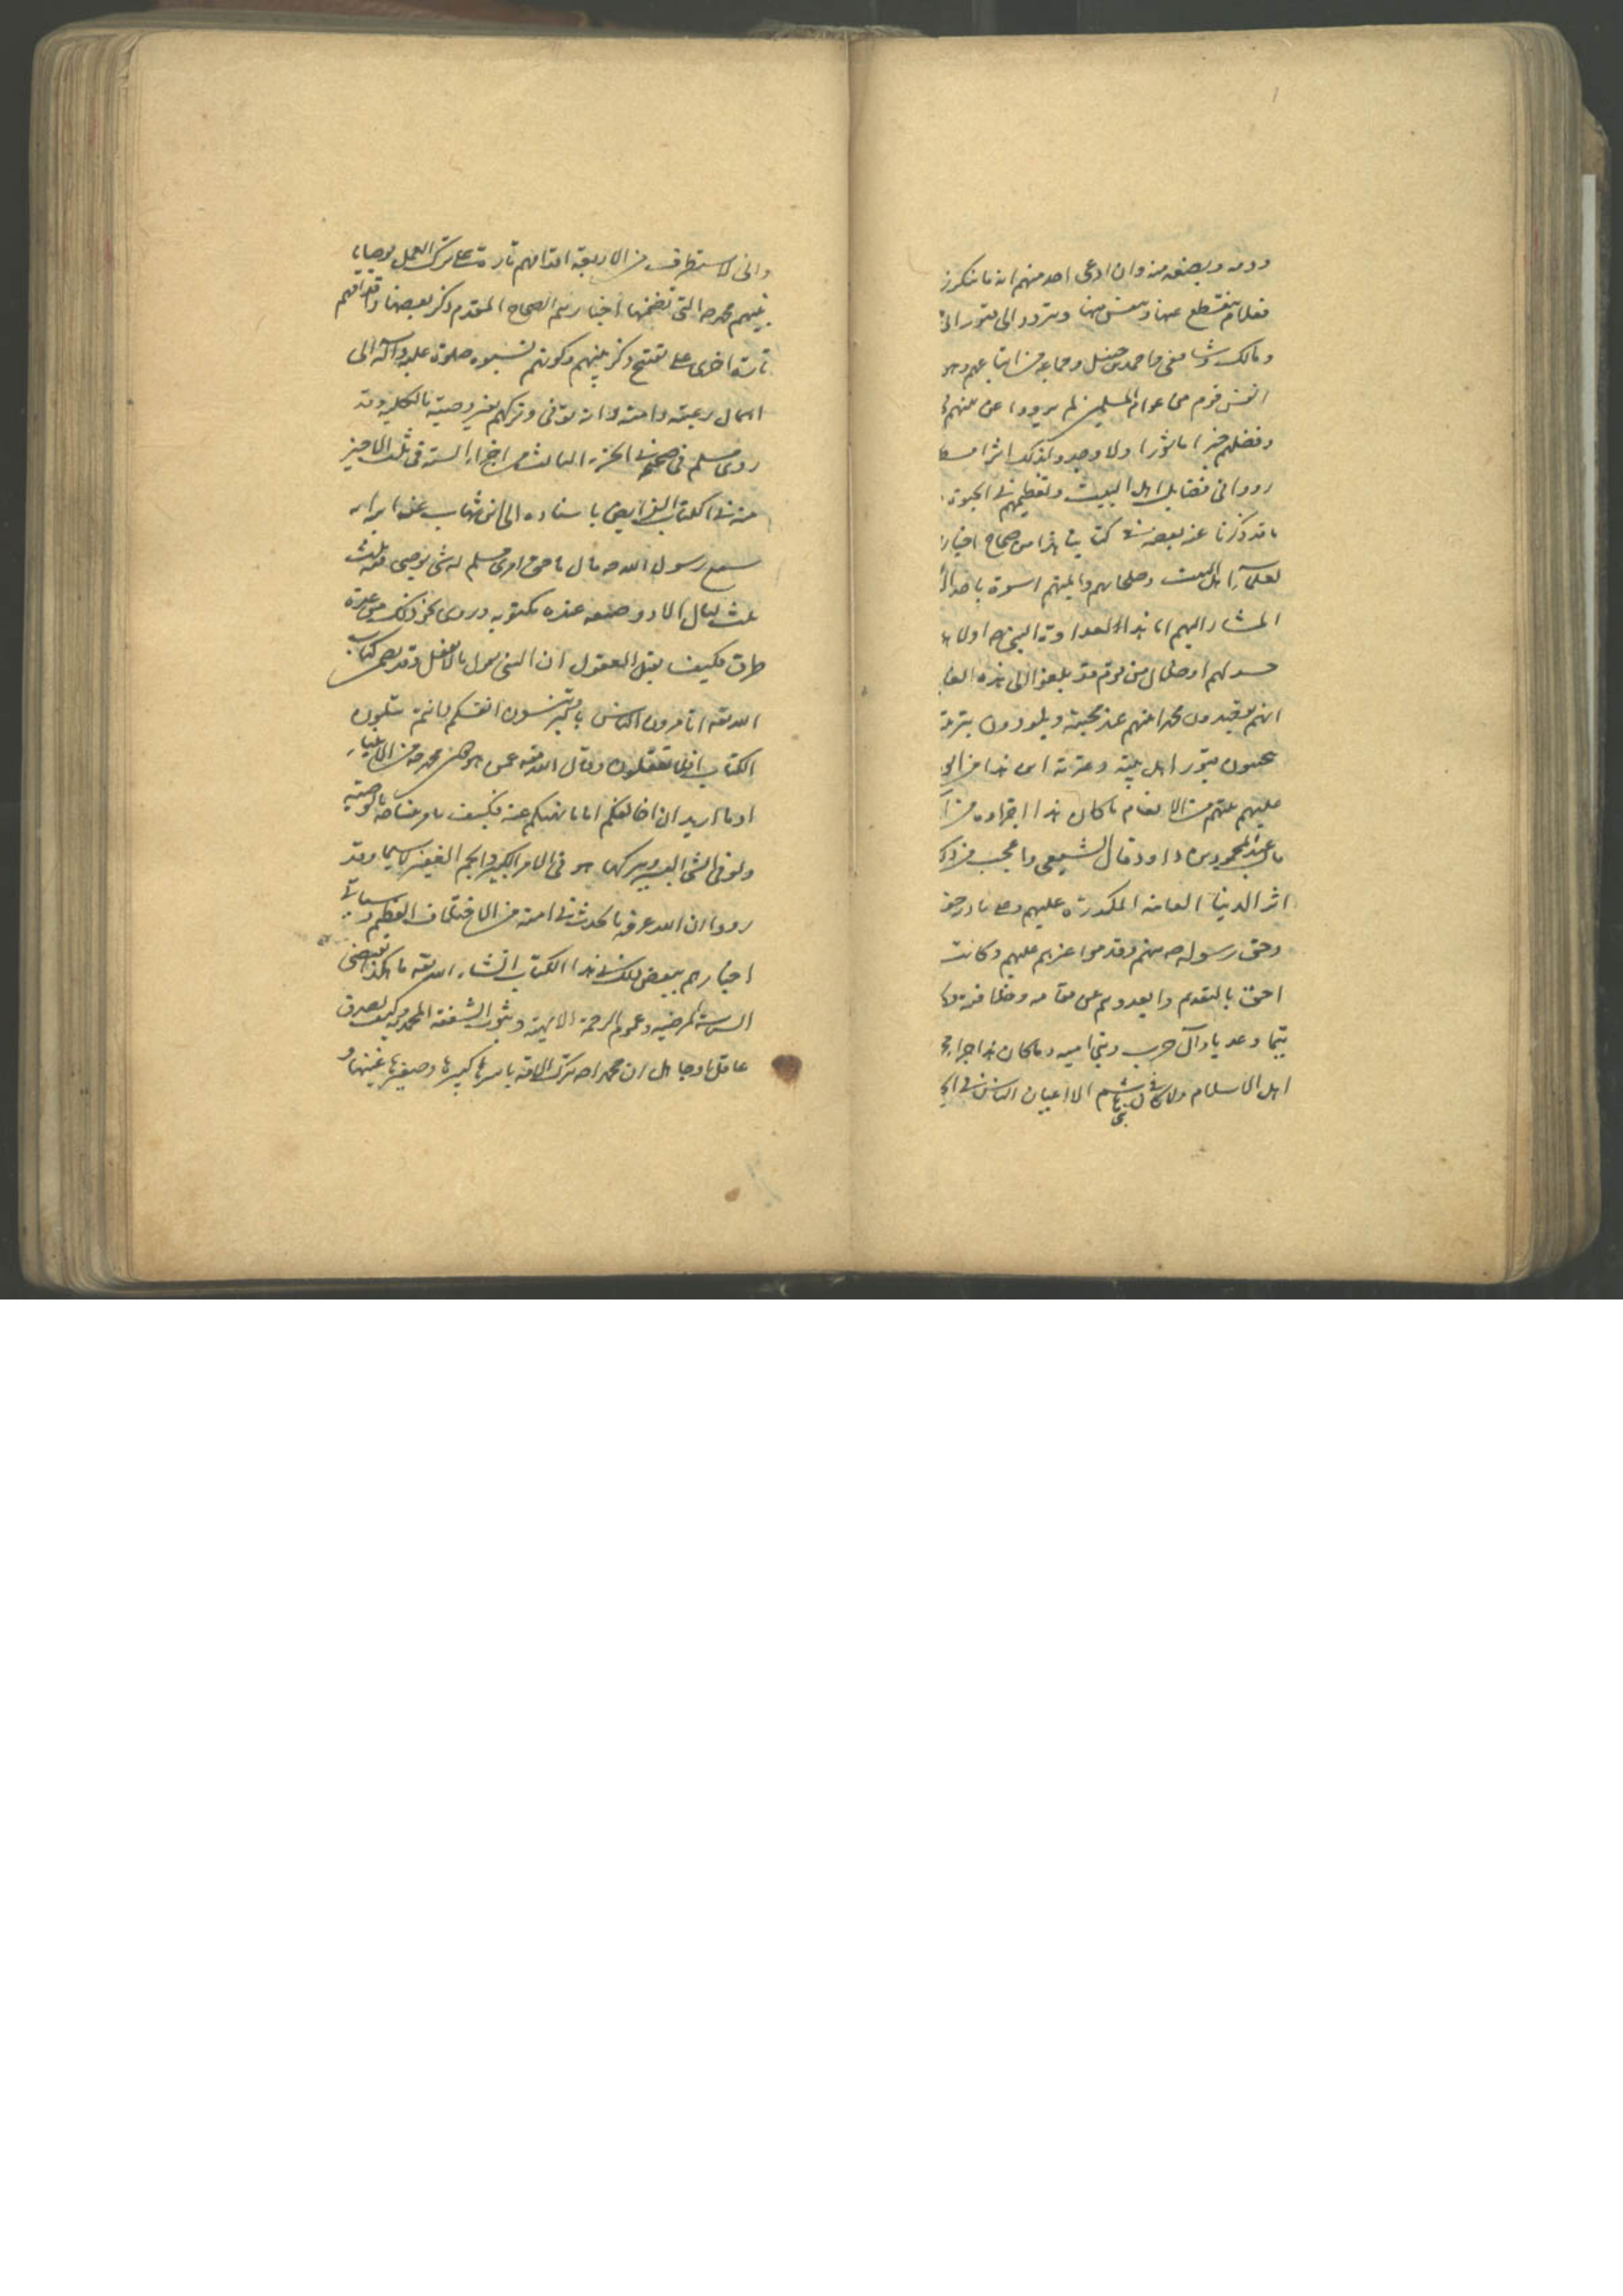 دونه ويصنعه منه وان ادعى احد منهم انه ما ينكر
فعلام ينقطع عنها وينفس منها ويتردد الى قبور
ومالك وشافعى واحمد بن حنبل وجماعه من اتباعهم وهو
انفس قوم من عوام المسلمين لم يرووا عن نبيهم
وفضلهم خبرا ماثورا ولا وجدوا لذلك اثرا
رووا فى فضايل اهل البيت وتعظيمهم فى الحيوة
ما قد ذكرنا عنه بعضه فى كتابنا هذا من صحاح اخبار
لعلمآء اهل البيت وصلحائهم وائمتهم اسوة
المشار اليهم اما هذا لعداوة النبى ص او
حسد لهم او ضلال من قوم قد بلغوا الى هذه
انهم يقصدون محمدا نبيهم عند محبته ويلوذون بتربة
يجيبون قبور اهل بيته وعترته اين هذا من
عليهم عليهم من الانعام ما كان هذا اجزاوه
ما عبد المحمود بن داود وقال الشيعى واعجب من
اثر الدنيا الفانيه المكدرة عليهم
وحق رسوله ص منهم وقدموا غيرهم عليهم وكانت
احق بالتقدم وابعدوهم عن مقامه وخلافته
تيما وعديا وآل حرب وبنى اميه وما كان هذا جزاء
اهل الاسلام ولا كان بنى هاشم الا اعيان الناس فى
وانى لاستطرف من الاربعة اقدامهم تارة على ترك العمل بوصايا
نبيهم محمد ص التى تضمنها اخبارهم الصحاح المقدم ذكر بعضها واقدامهم
تارة اخرى على تقبيح ذكر نبيهم وكونهم نسبوه صلوة عليه وآله الى
اهمال رعيته وامته وانه توفى وتركهم بغير وصيته بالكليه وقد
روى مسلم فى صحيحه فى الجزء الثالث من اجزاء الستة فى ثلث الاخير
منه فى كتاب الفرايض باسناده الى ابن شهاب عن ابيه انه
سمع رسول الله ص قال ما حق امرء مسلم له شئ يوصى فيه يبيت
ثلث ليال الا ووصيته عنده مكتوبه وروى نحو ذلك من عدة
طرق فكيف يقبل العقول ان النبى يقول ما لا يفعل وقد تضمن كتاب
الله تعه اتامرون الناس بالبر وتنسون انفسكم وانتم تتلون
الكتاب افلا تعقلون وقال الله تعه عمن هو دون محمد ص من الانبياء
وما اريد ان اخالفكم الى ما انهيكم عنه فكيف يامر عنا ص بالوصيته
ولو فى الشئ اليسير ويتركها هو فى الامر الكبير والجم الغفير لا سيما وقد
رووا ان الله عرفه ما يحدث فى امته من الاختلاف العظيم وسياتى
اخبارهم ببعض ذلك فى هذا الكتاب انشاء الله تعه ما هكذا تقتضى
السياسة المرضيه وعموم الرحمة الالهية وثبوت الشفقه المحمديه وكيف يصدق
عاقل او جاهل ان محمدا ص ترك الامة باسرها كبيرها وصغيرها غنيها و